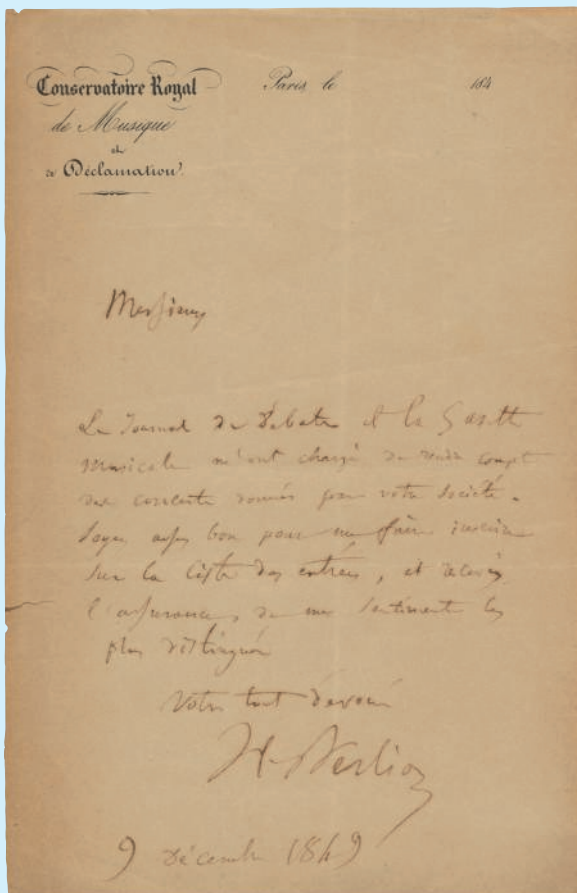 Conservatoire Royal
de Musique
et
de Déclamation.
Paris, le 184
Messieurs
Le Journal des Débats et la Gazette
musicale m'ont chargé de rendre compte
des concerts donnés par votre Société.
Soyez assez bon pour me faire inscrire
sur la liste des entrées, et recevez
l'assurance de mes sentiments les
plus distingués
Votre tout dévoué
H. Berlioz
9 décembre 1849